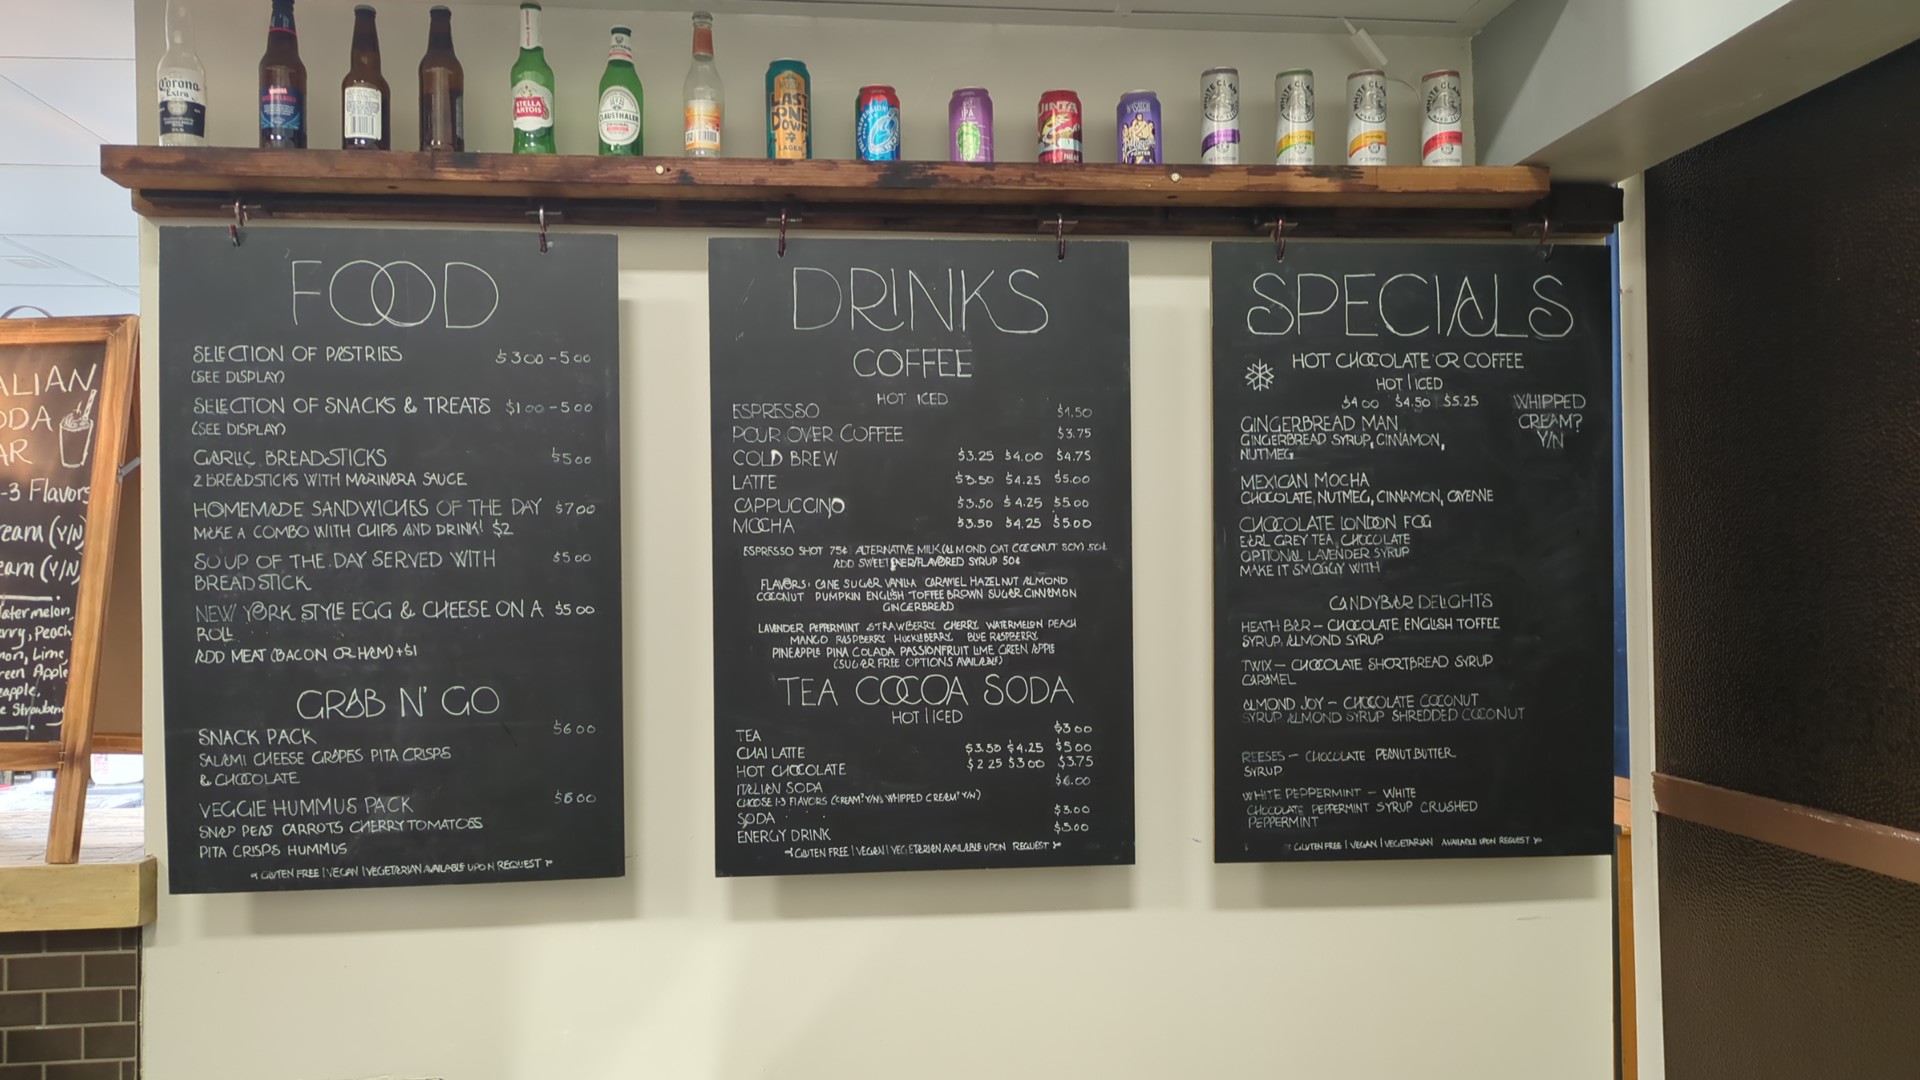 Corona
Extra
STELLA
ARTOIS
CLAUSTHALER
LAST
ONE
DOWN
LAGER
IPA
WHITE CLAW
WHITE CLAW
WHITE CLAW
WHITE CLAW
ALIAN
ODA
AR
-3 Flavors
ream (Y/N)
eam (Y/N)
atermelon,
erry, Peach
mon, Lime,
reen Apple
eapple,
e Strawberry
FOOD
SELECTION OF PASTRIES $3 00 - 5 00
(SEE DISPLAY)
SELECTION OF SNACKS & TREATS $1 00 - 5 00
(SEE DISPLAY)
GARLIC BREADSTICKS $5 00
2 BREADSTICKS WITH MARINARA SAUCE
HOMEMADE SANDWICHES OF THE DAY $7 00
MAKE A COMBO WITH CHIPS AND DRINK! $2
SOUP OF THE DAY SERVED WITH $5 00
BREADSTICK
NEW YORK STYLE EGG & CHEESE ON A $5 00
ROLL
ADD MEAT (BACON OR HAM) +$1
GRAB N' GO
SNACK PACK $6 00
SALAMI CHEESE GRAPES PITA CRISPS
& CHOCOLATE
VEGGIE HUMMUS PACK $6 00
SNAP PEAS CARROTS CHERRY TOMATOES
PITA CRISPS HUMMUS
GLUTEN FREE | VEGAN | VEGETARIAN AVAILABLE UPON REQUEST
DRINKS
COFFEE
HOT ICED
ESPRESSO $1.50
POUR OVER COFFEE $3.75
COLD BREW $3.25 $4.00 $4.75
LATTE $3.50 $4.25 $5.00
CAPPUCCINO $3.50 $4.25 $5.00
MOCHA $3.50 $4.25 $5.00
ESPRESSO SHOT 75¢ ALTERNATIVE MILK (ALMOND OAT COCONUT SOY) 50¢
ADD SWEETENER/FLAVORED SYRUP 50¢
FLAVORS: CANE SUGAR VANILLA CARAMEL HAZELNUT ALMOND
COCONUT PUMPKIN ENGLISH TOFFEE BROWN SUGAR CINNAMON
GINGERBREAD
LAVENDER PEPPERMINT STRAWBERRY CHERRY WATERMELON PEACH
MANGO RASPBERRY HUCKLEBERRY BLUE RASPBERRY
PINEAPPLE PINA COLADA PASSIONFRUIT LIME GREEN APPLE
(SUGAR FREE OPTIONS AVAILABLE)
TEA COCOA SODA
HOT | ICED
TEA $3 00
CHAI LATTE $3.50 $4.25 $5 00
HOT CHOCOLATE $2 25 $3 00 $3.75
ITALIAN SODA $6.00
CHOOSE 1-3 FLAVORS (CREAM? Y/N & WHIPPED CREAM? Y/N)
SODA $3.00
ENERGY DRINK $5.00
GLUTEN FREE | VEGAN | VEGETARIAN AVAILABLE UPON REQUEST
SPECIALS
HOT CHOCOLATE OR COFFEE
HOT | ICED
$4 00 $4.50 $5.25
WHIPPED
CREAM?
Y/N
GINGERBREAD MAN
GINGERBREAD SYRUP, CINNAMON,
NUTMEG
MEXICAN MOCHA
CHOCOLATE, NUTMEG, CINNAMON, CAYENNE
CHOCOLATE LONDON FOG
EARL GREY TEA, CHOCOLATE
OPTIONAL LAVENDER SYRUP
MAKE IT SMOGGY WITH
CANDYBAR DELIGHTS
HEATH BAR – CHOCOLATE, ENGLISH TOFFEE
SYRUP, ALMOND SYRUP
TWIX – CHOCOLATE SHORTBREAD SYRUP
CARAMEL
ALMOND JOY – CHOCOLATE COCONUT
SYRUP ALMOND SYRUP SHREDDED COCONUT
REESES – CHOCOLATE PEANUT BUTTER
SYRUP
WHITE PEPPERMINT – WHITE
CHOCOLATE PEPPERMINT SYRUP CRUSHED
PEPPERMINT
GLUTEN FREE | VEGAN | VEGETARIAN AVAILABLE UPON REQUEST